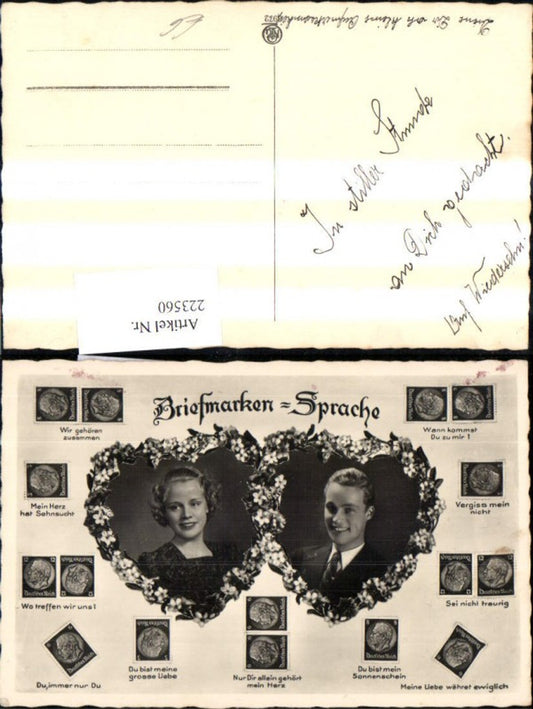 In stiller Stunde
an Dich gedacht.
Auf Wiedersehn!
Artikel Nr.
223560
Briefmarken = Sprache
Wir gehören
zusammen
Wann kommst
Du zu mir !
Mein Herz
hat Sehnsucht
Vergiss mein
nicht
Wo treffen wir uns !
Sei nicht traurig
Du, immer nur Du
Du bist meine
grosse Liebe
Nur Dir allein gehört
mein Herz
Du bist mein
Sonnenschein
Meine Liebe währet ewiglich